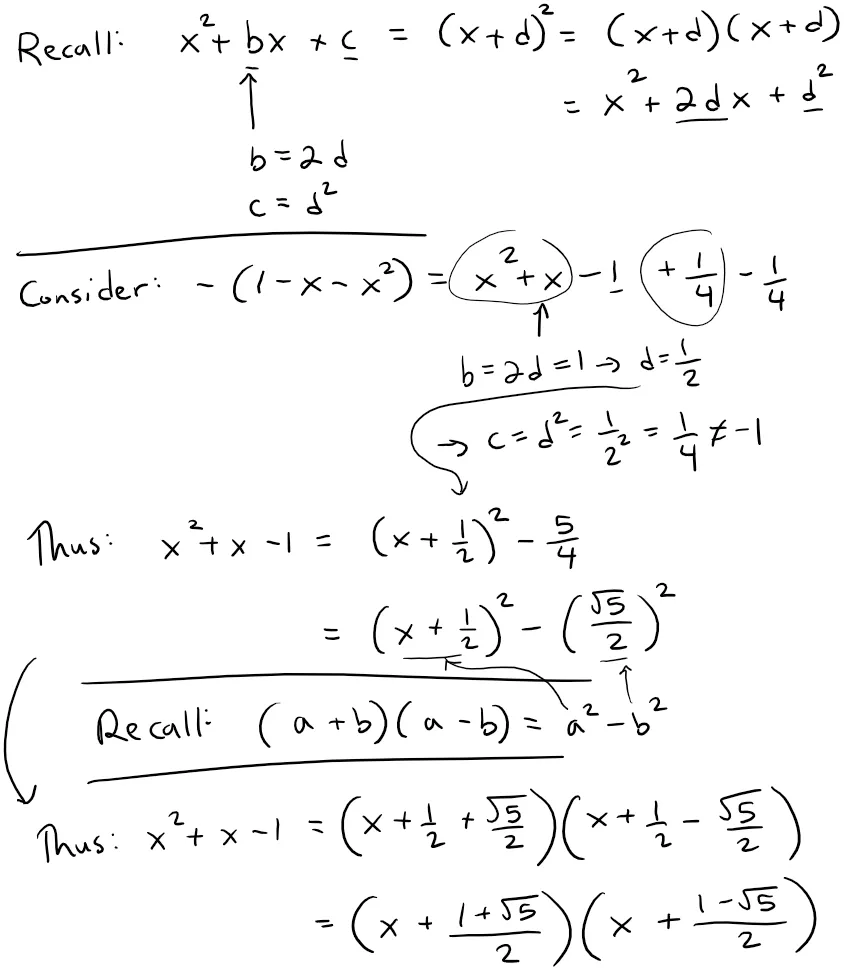 Recall: x² + bx + c = (x+d)² = (x+d)(x+d)
= x² + 2dx + d²
↑
b = 2d
c = d²
Consider: -(1-x-x²) = x² + x - 1 + 1/4 - 1/4
↑
b = 2d = 1 → d = 1/2
→ c = d² = 1/2² = 1/4 ≠ -1
Thus: x² + x - 1 = (x + 1/2)² - 5/4
= (x + 1/2)² - (√5/2)²
Recall: (a+b)(a-b) = a² - b²
Thus: x² + x - 1 = (x + 1/2 + √5/2)(x + 1/2 - √5/2)
= (x + (1+√5)/2)(x + (1-√5)/2)